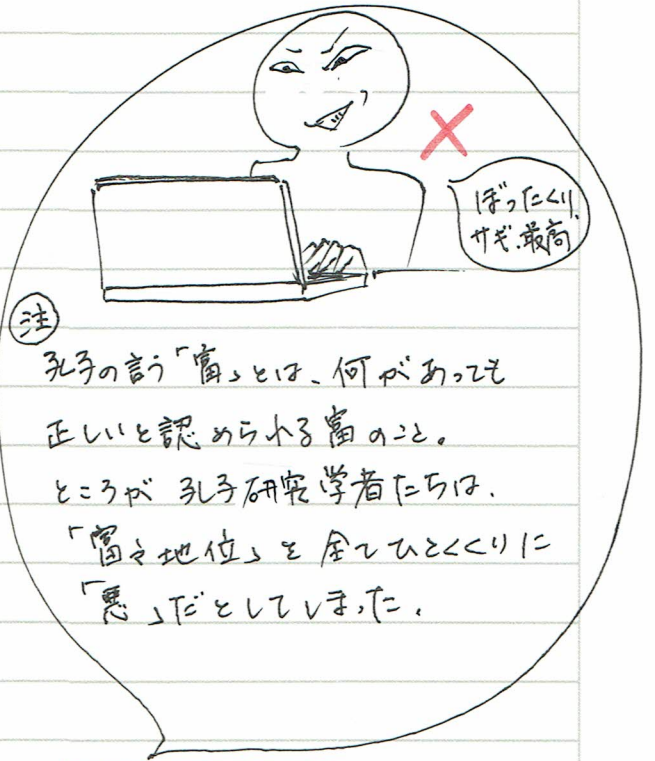 ぼったくり、
サギ、最高
注
孔子の言う「富」とは、何があっても
正しいと認められる富のこと。
ところが孔子研究学者たちは、
「富や地位」を全てひとくくりに
「悪」だとしてしまった。